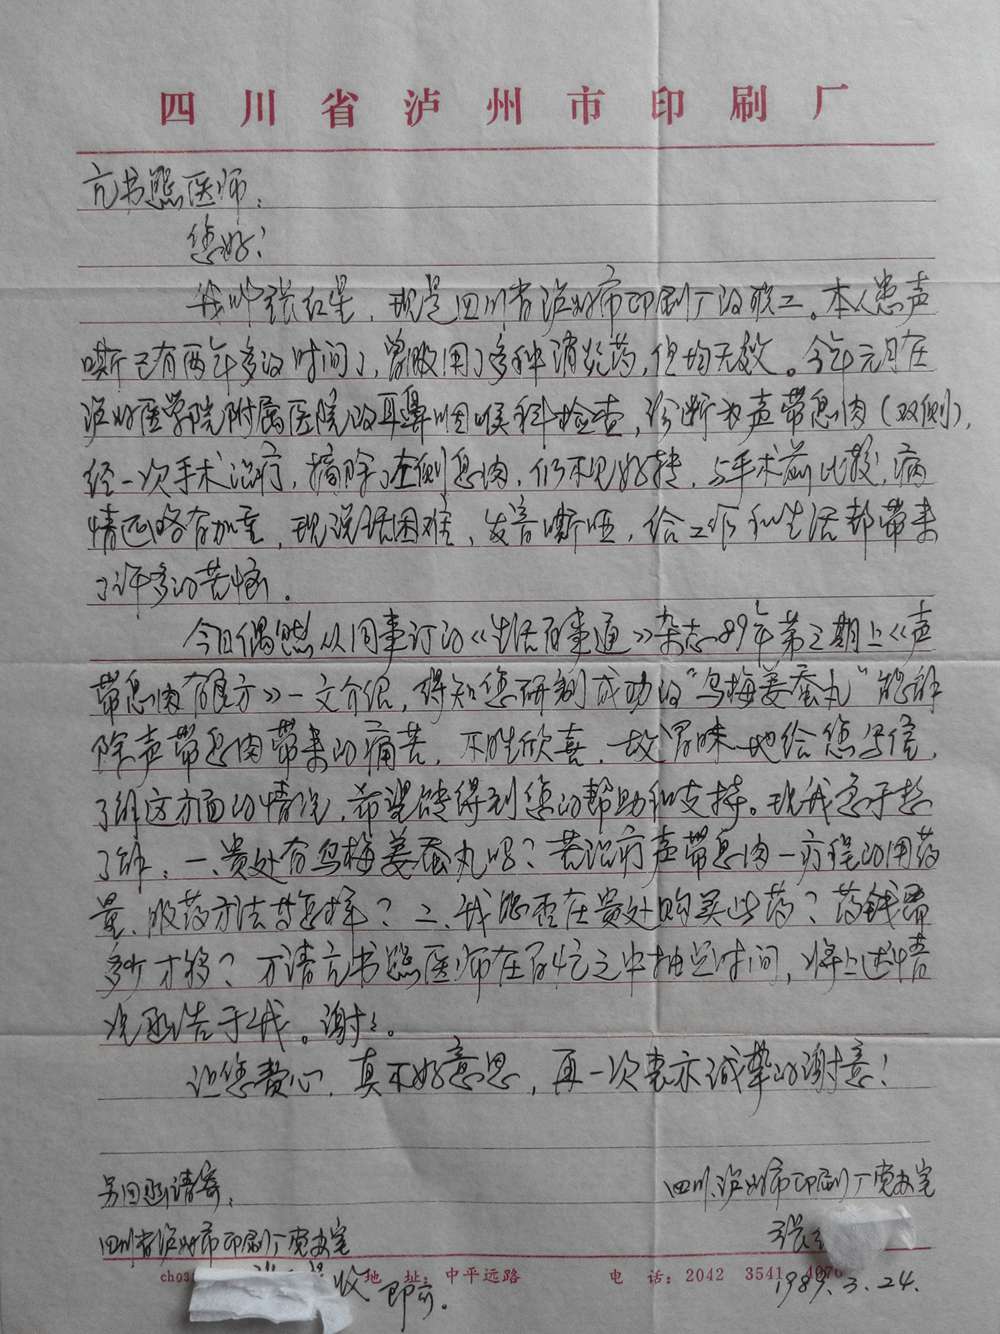 四川省泸州市印刷厂
亢书熙医师：
您好！
我叫张红星，现是四川省泸州市印刷厂的职工。本人患声
嘶已有两年多的时间了，曾服用了多种消炎药，但均无效。今年元月在
泸州医学院附属医院的耳鼻咽喉科检查，诊断为声带息肉（双侧），
经一次手术治疗，摘除了左侧息肉，仍不见好转，与手术前比较，病
情还略有加重，现说话困难、发音嘶哑，给工作和生活都带来
了许多的苦恼。
今日偶然从同事订的《生活百事通》杂志89年第三期上《声
带息肉有良方》一文介绍，得知您研制成功的“乌梅姜蚕丸”能解
除声带息肉带来的痛苦，不胜欣喜，故冒昧地给您写信，
了解这方面的情况，希望能得到您的帮助和支持。现我急于想
了解：一、贵处有乌梅姜蚕丸吗？若治疗声带息肉一疗程的用药
量、服药方法若怎样？二、我能否在贵处购买此药？药钱需
多少才够？万请亢书熙医师在百忙之中抽空时间，将上述情
况函告于我。谢谢。
让您费心，真不好意思，再一次表示诚挚的谢意！
四川泸州市印刷厂党办室
张
1989.3.24.
另回函请寄：
四川省泸州市印刷厂党办室
收 即可.
地 址：中平远路 电 话：2042 3541